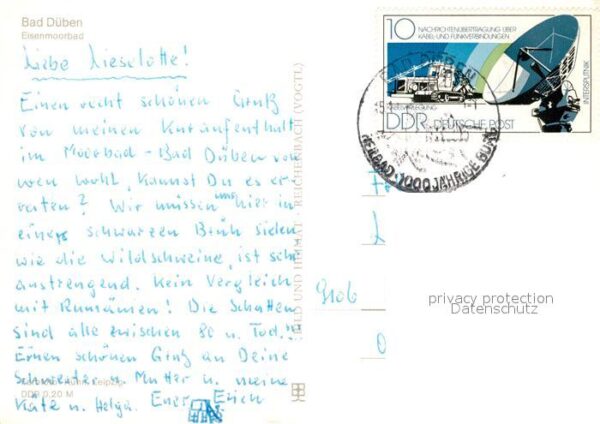 Bad Düben
Eisenmoorbad
Liebe Lieselotte!
Einen recht schönen Gruß
von meinen Kuraufenthalt
im Moorbad-Bad Düben von
wen wohl, kannst Du es er-
raten? Wir müssen uns hier in
einer schwarzen Brüh sielen
wie die Wildschweine, ist sehr
anstrengend. Kein Vergleich
mit Rumänien! Die Schatten
sind alle zwischen 80 u. Tod!!
Einen schönen Gruß an Deine
Schwester u. Mutter u. meine
Käte u. Helga. Euer Erich
Leipzig
DDR 0,20 M
BILD UND HEIMAT · REICHENBACH (VOGTL)
10 NACHRICHTENÜBERTRAGUNG ÜBER
KABEL- UND FUNKVERBINDUNGEN
INTERSPUTNIK
KABELVERLEGUNG
DDR DEUTSCHE POST
BAD DÜBEN
HEILBAD · 1000 JÄHRIGE BURG
9106
privacy protection
Datenschutz